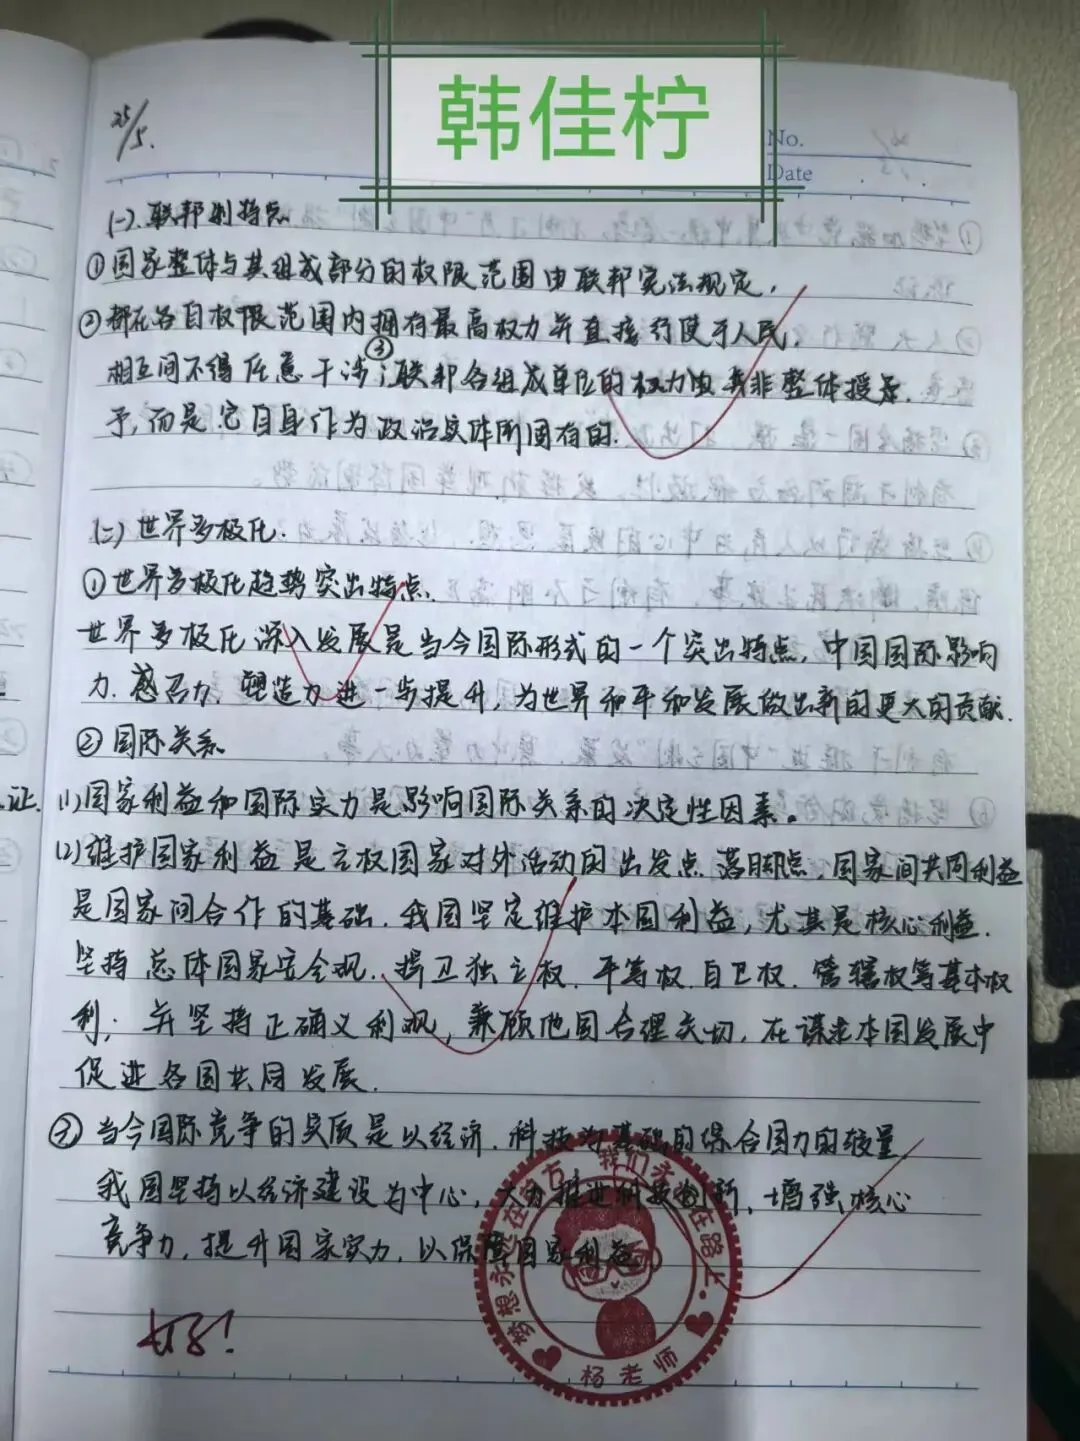 韩佳柠
25/5.
No.
Date
(一).联邦制特点
①国家整体与其组成部分的权限范围由联邦宪法规定,
②都在各自权限范围内拥有最高权力并直接行使于人民,
相互间不得任意干涉;③联邦各组成单位的权力由并非整体授
予,而是它自身作为政治实体所固有的.
(二)世界多极化.
①世界多极化趋势突出特点.
世界多极化深入发展是当今国际形式的一个突出特点,中国国际影响
力.感召力.塑造力进一步提升,为世界和平和发展做出新的更大的贡献.
②国际关系
证.
(1)国家利益和国际实力是影响国际关系的决定性因素。
(2)维护国家利益是主权国家对外活动的出发点落脚点,国家间共同利益
是国家间合作的基础.我国坚定维护本国利益,尤其是核心利益.
坚持总体国家安全观.捍卫独立权.平等权.自卫权.管辖权等基本权
利;并坚持正确义利观,兼顾他国合理关切,在谋求本国发展中
促进各国共同发展.
③当今国际竞争的实质是以经济.科技为基础的综合国力的较量,
我国坚持以经济建设为中心,大力推进科技创新,增强核心
竞争力,提升国家实力,以保障国家利益
梦想永远在前方,我们永远在路上.
杨老师
好!